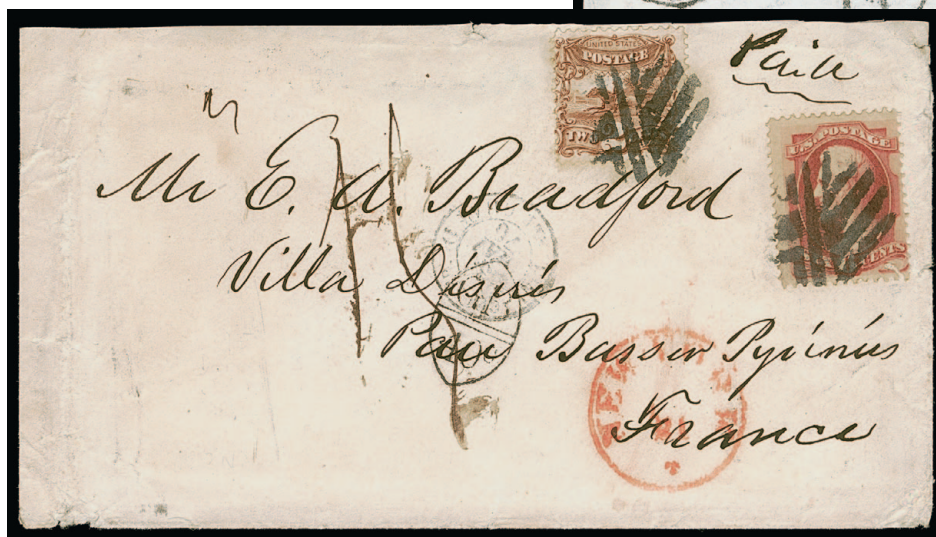 UNITED STATES
POSTAGE
TWO
Paid
U.S. POSTAGE
CENTS
Mr E. A. Bradford
Villa
Pau Basses Pyrénées
France
NEW YORK